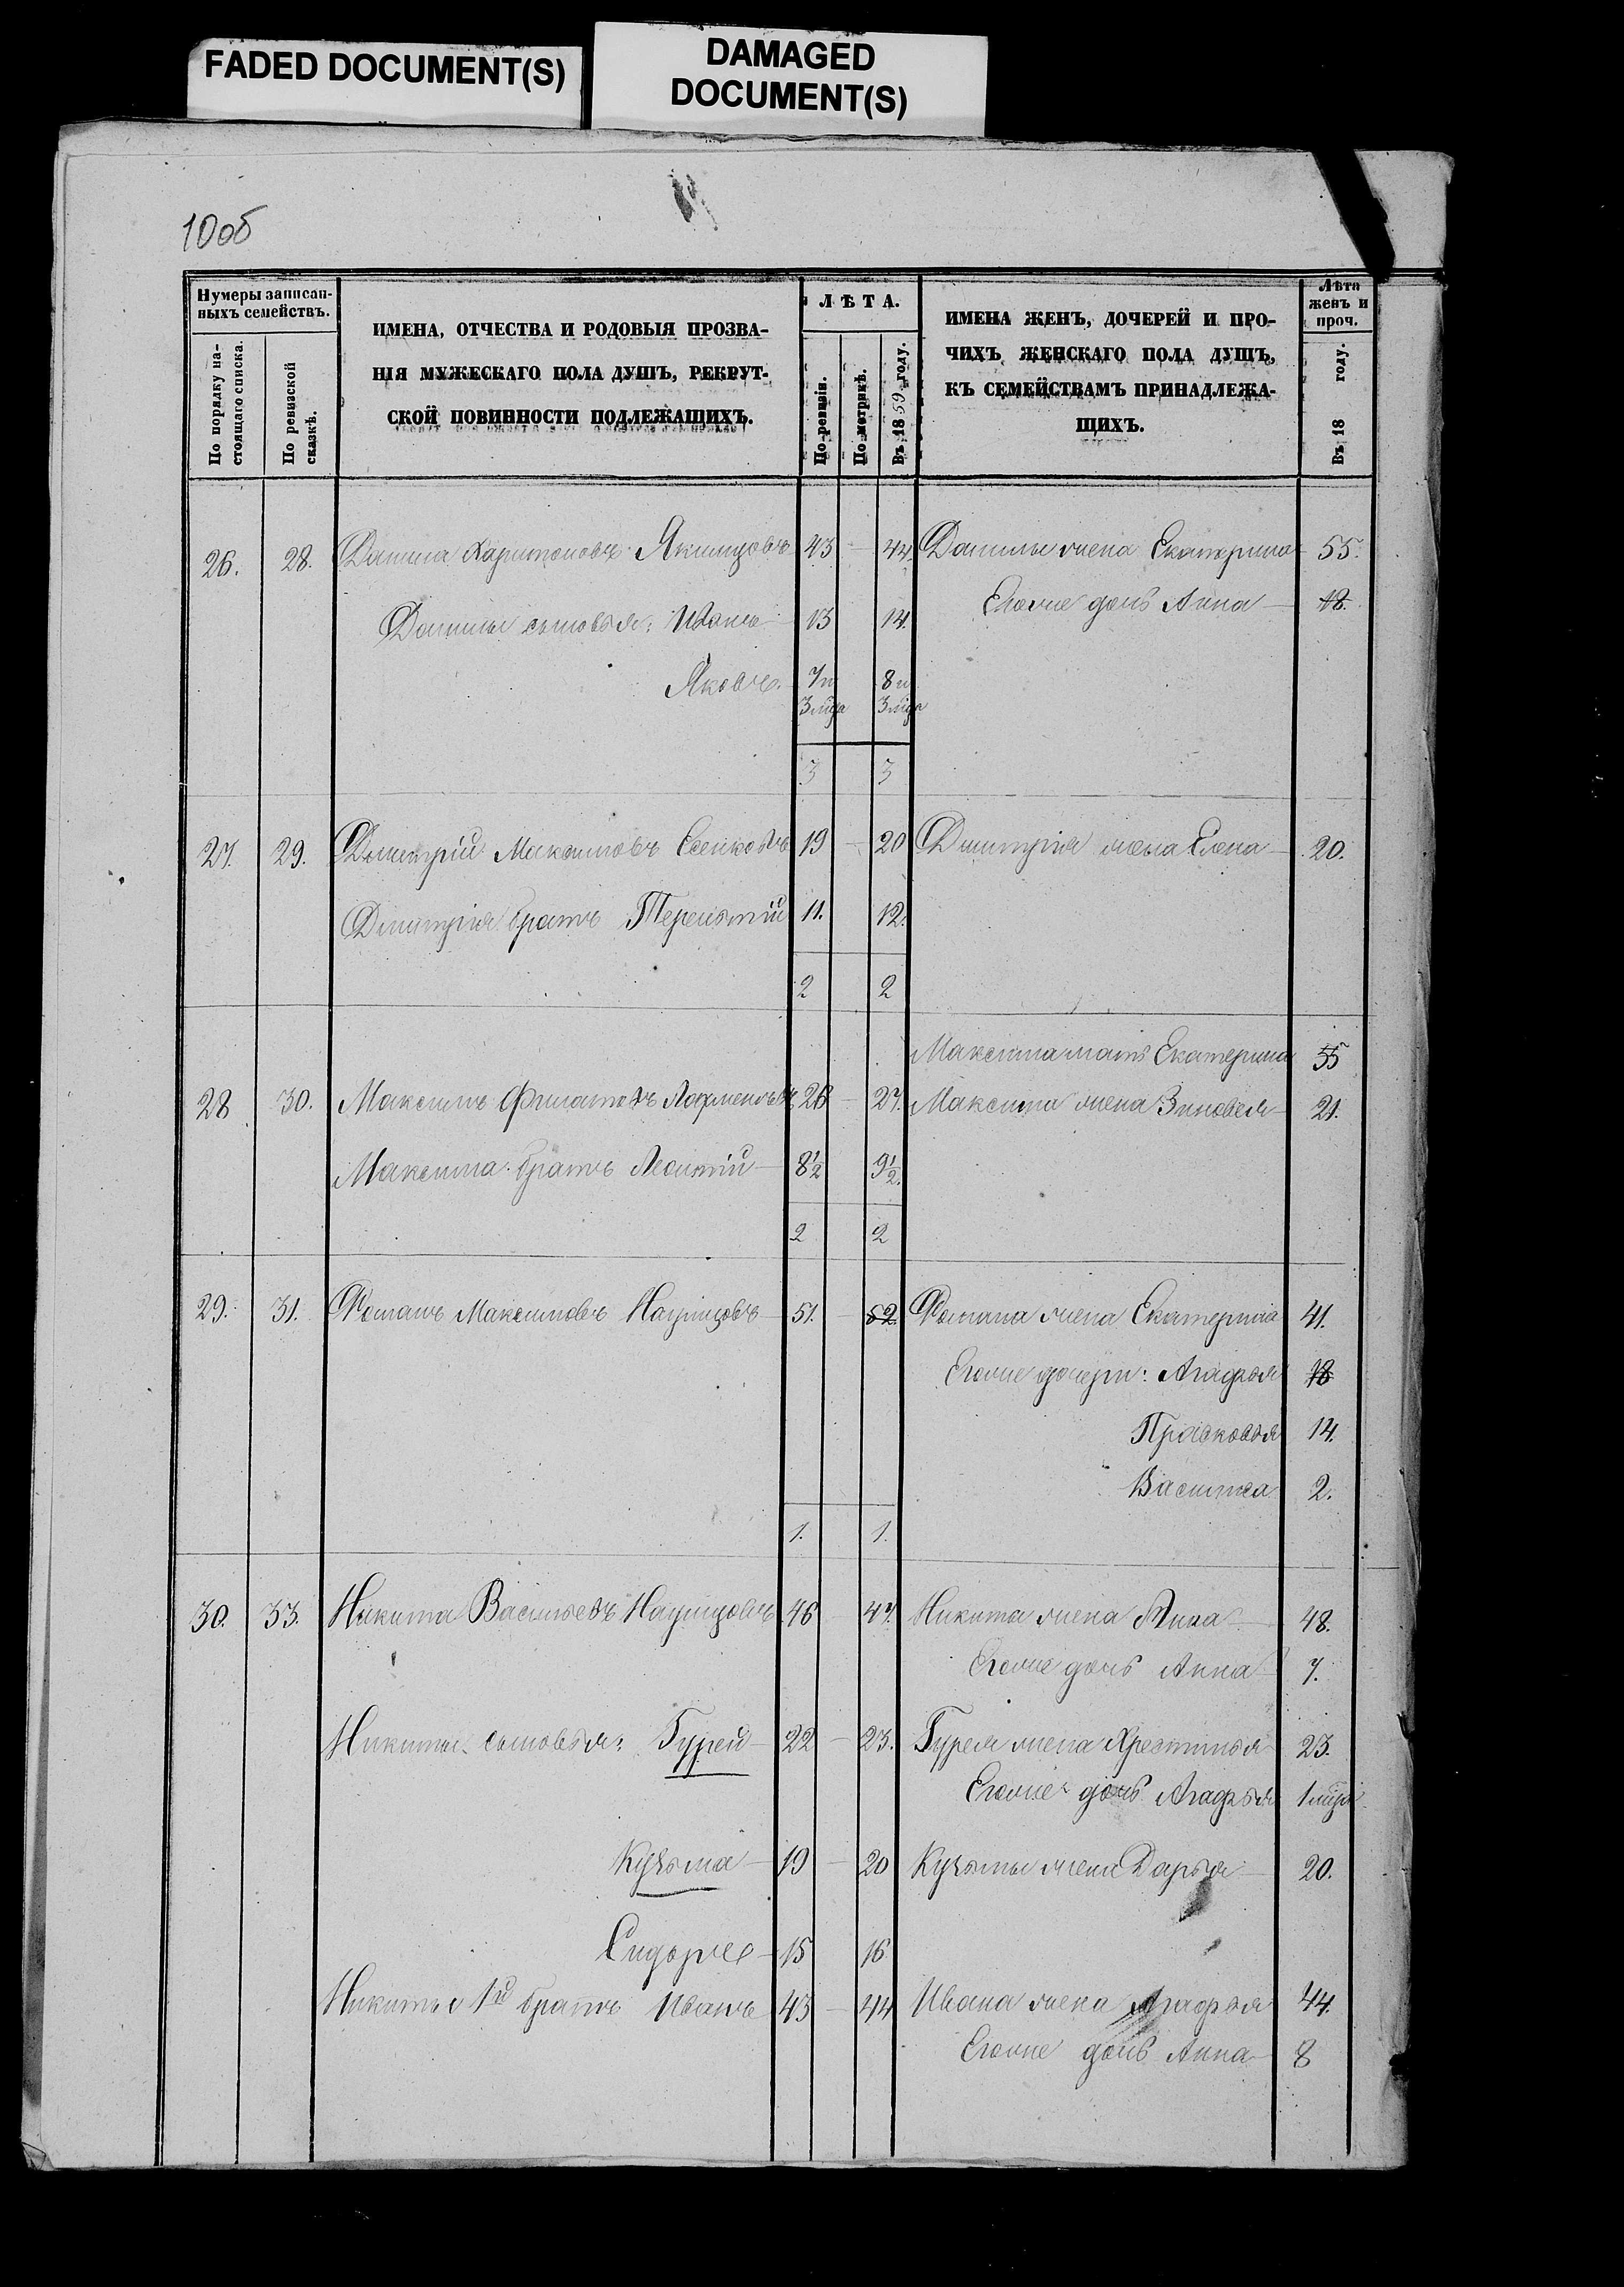 FADED DOCUMENT(S)
DAMAGED
DOCUMENT(S)
10об
Нумеры записан-
ныхъ семействъ.
По порядку на-
стоящаго списка.
По ревизской
сказкѣ.
ИМЕНА, ОТЧЕСТВА И РОДОВЫЯ ПРОЗВА-
НІЯ МУЖЕСКАГО ПОЛА ДУШЪ, РЕКРУТ-
СКОЙ ПОВИННОСТИ ПОДЛЕЖАЩИХЪ.
ЛѢТА.
По ревизіи.
По метрикѣ.
Въ 1859 году.
ИМЕНА ЖЕНЪ, ДОЧЕРЕЙ И ПРО-
ЧИХЪ ЖЕНСКАГО ПОЛА ДУШЪ,
КЪ СЕМЕЙСТВАМЪ ПРИНАДЛЕЖА-
ЩИХЪ.
Лѣта
женъ и
проч.
Въ 18 году.
26. 28. Данила Харитоновъ Якимцовъ 43 – 44 Данилы жена Екатерина 55.
Егоже дочь Анна – 18.
Данилы сыновья: Иванъ 13 14.
Яковъ. 7 и 8 и
3 мѣца 3 мѣца
3 3
27. 29. Дмитрій Максимовъ Есенковъ 19 – 20 Дмитрія жена Елена – 20.
Дмитрія братъ Терентій 11. 12.
2 2
Максима мать Екатерина 55
28 30. Максимъ Филатовъ 26 – 27. Максима жена Зиновея 21.
Максима братъ Леонтій – 8½ 9½.
2 2
29. 31. Романъ Максимовъ Наумцовъ 51. – 52. Романа жена Екатерина 41.
Егоже дочери: Агафья 18
Прасковья 14.
Василиса 2.
1. 1.
30. 33. Никита Васильевъ Наумцовъ 46 47. Никиты жена Анна – 48.
Егоже дочь Анна 7.
Никиты сыновья: Гурей – 22 – 23. Гурея жена Хрестинья 23.
Егоже дочь Агафья 1 мѣца
Кузьма – 19 – 20 Кузьмы жена Дарья – 20.
Сидоръ – 15 16
Никиты 1й братъ Иванъ 43 – 44 Ивана жена Агафья 44.
Егоже дочь Анна – 8